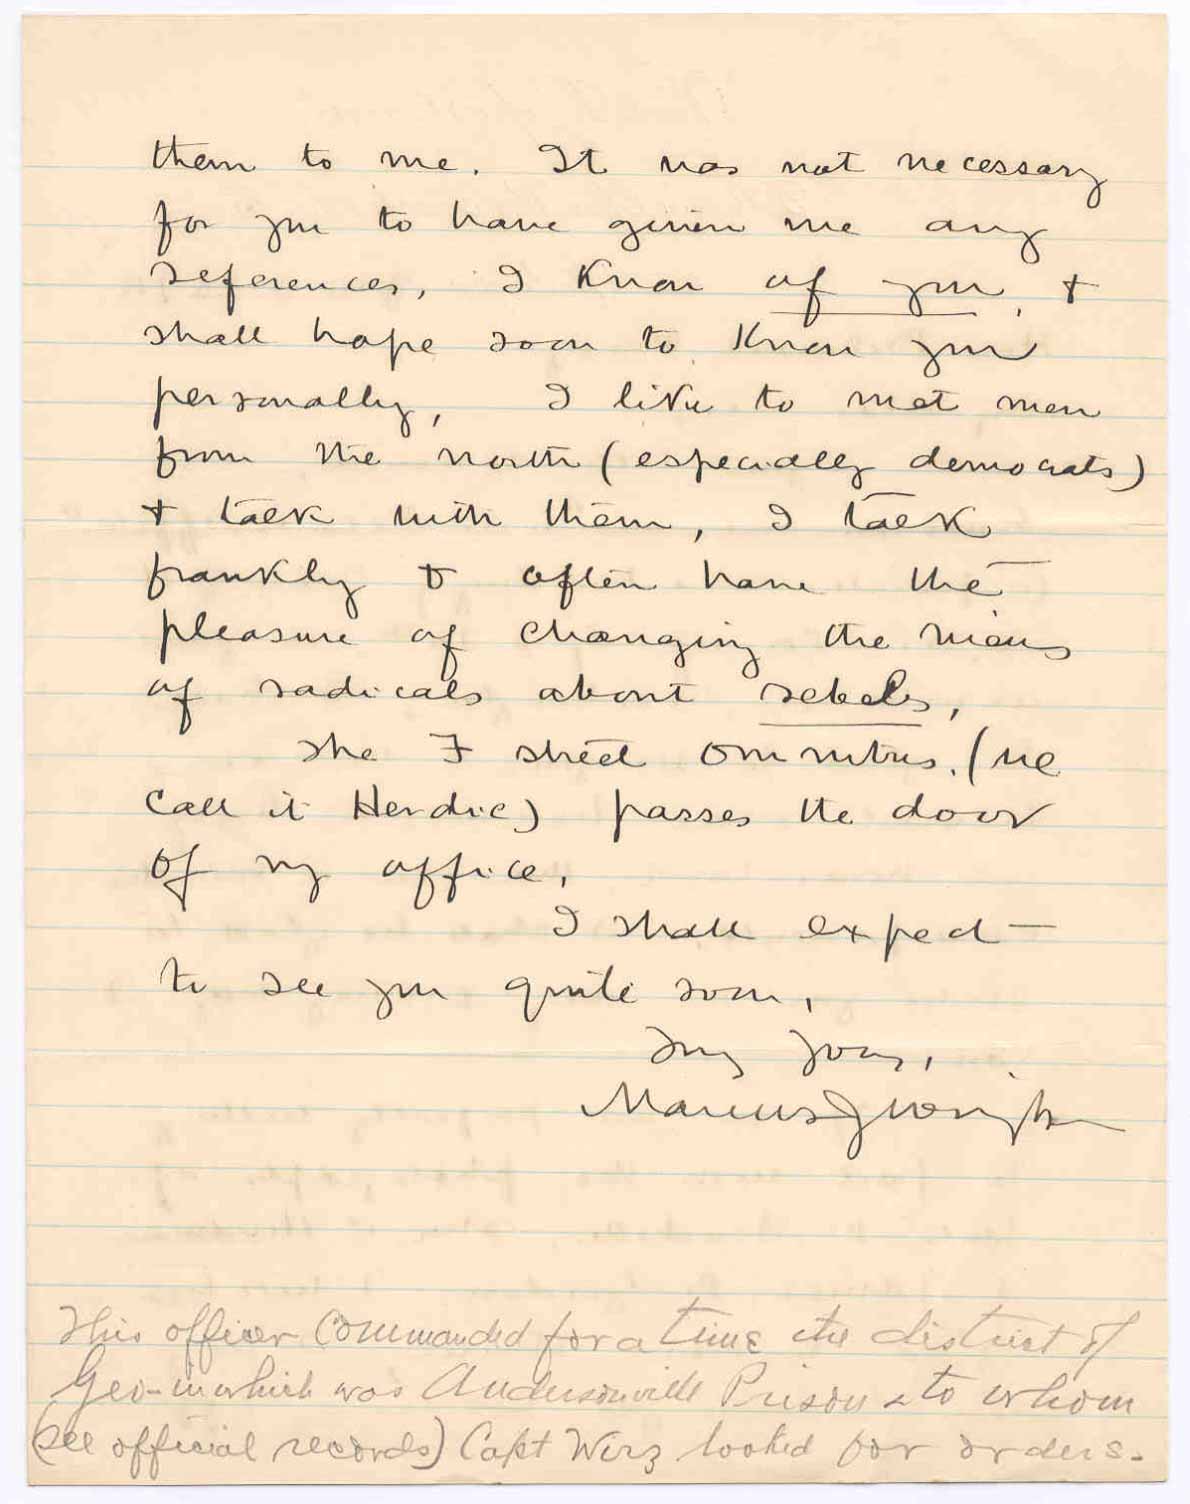 them to me. It was not necessary
for you to have given me any
references, I know of you, &
shall hope soon to know you
personally, I like to met men
from the north (especially democrats)
& talk with them, I talk
frankly & often have the
pleasure of changing the views
of radicals about rebels,
The F street Omnibus. (we
call it Herdic) passes the door
of my office,
I shall expect
to see you quite soon,
Truly Yours,
Marcus J Wright
This officer commanded for a time the district of
Geo- in which was Andersonville Prison & to whom
(see official records) Capt Wirz looked for orders.